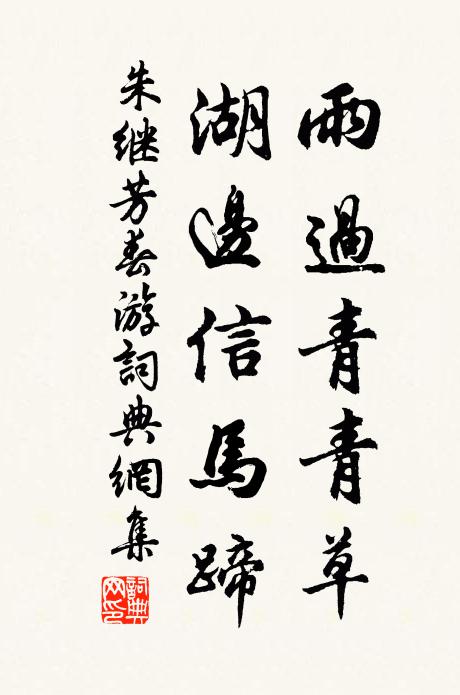 雨過青青草
湖邊信馬蹄
朱继芳春游詞典網集
詞典网印